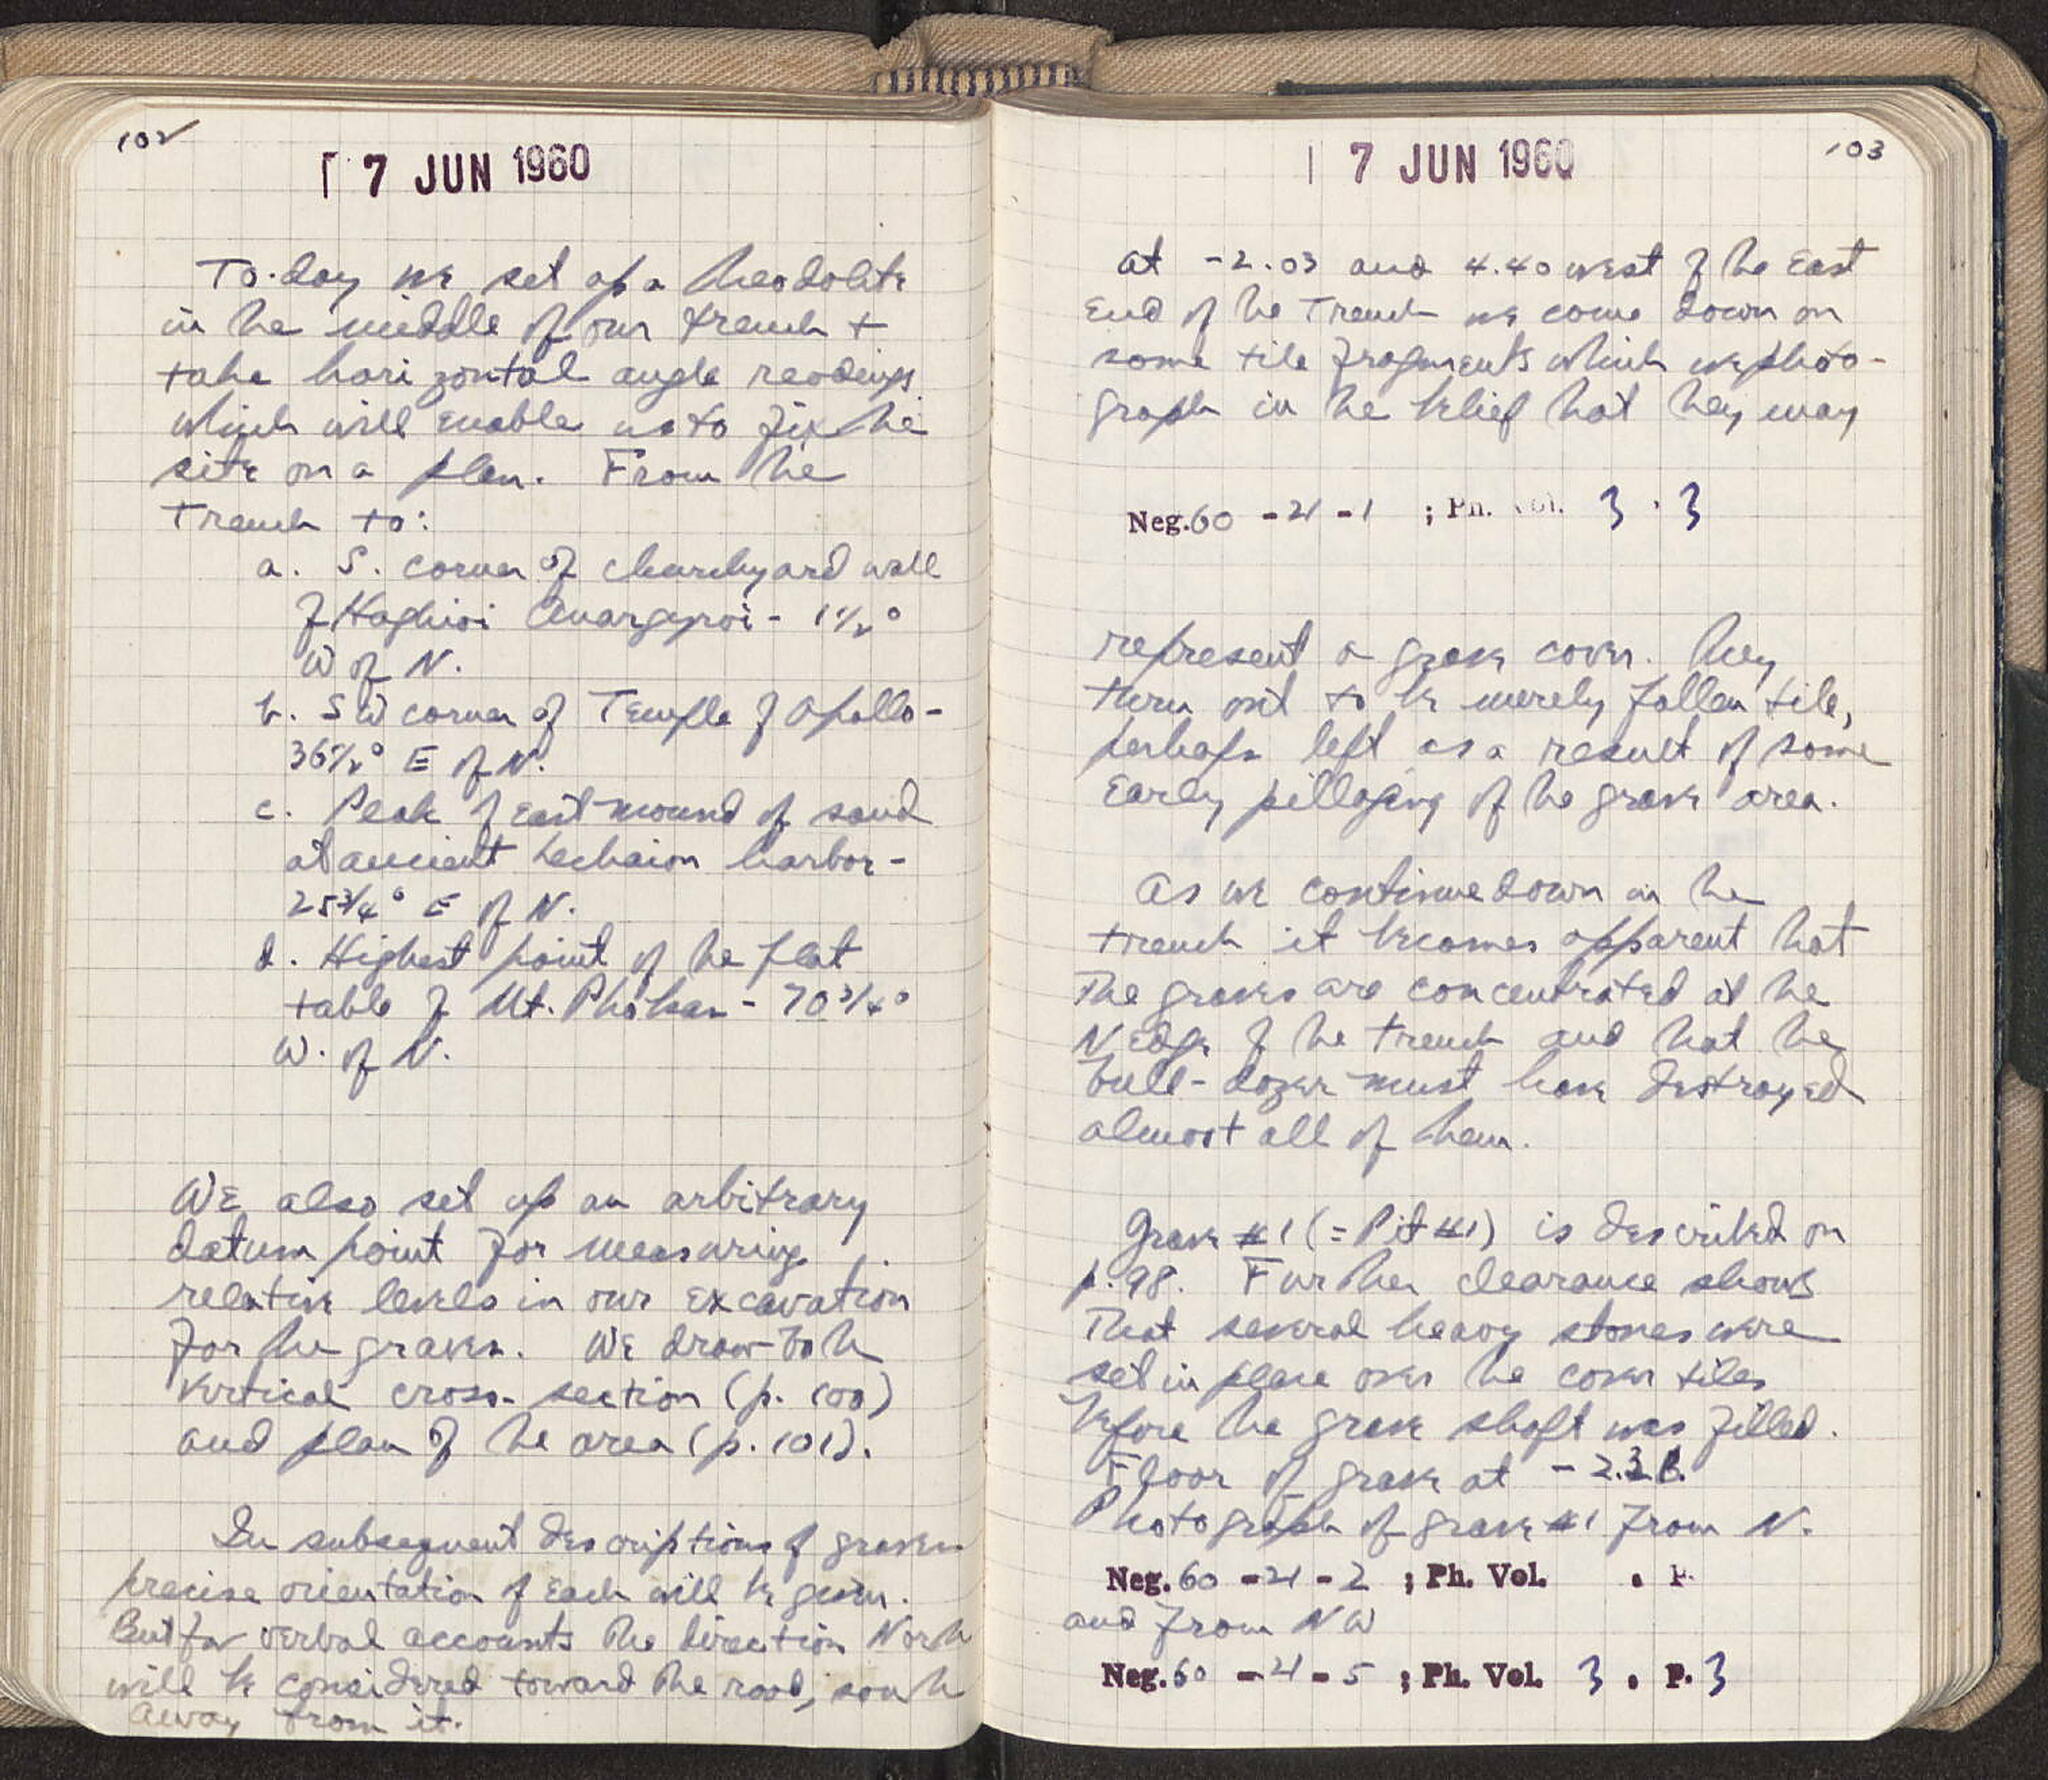 102
17 JUN 1960
To-day we set up a theodolite
in the middle of our trench +
take horizontal angle readings
which will enable us to fix the
site on a plan. From the
trench to:
a. S. corner of churchyard wall
of Haghioi Anargyroi - 1½°
W of N.
b. SW corner of Temple of Apollo -
36½° E of N.
c. Peak of east mound of sand
at ancient Lechaion harbor -
25¾° E of N.
d. Highest point of the flat
table of Mt. Phokas - 70¾°
W. of N.
We also set up an arbitrary
datum point for measuring
relative levels in our excavation
for the graves. We draw both
vertical cross-section (p. 100)
and plan of the area (p. 101).
In subsequent descriptions of graves
precise orientation of each will be given.
But for verbal accounts the direction North
will be considered toward the road, south
away from it.
103
17 JUN 1960
At -2.03 and 4.40 west of the East
End of the Trench we come down on
some tile fragments which we photo-
graph in the belief that they may
Neg. 60 - 21 - 1 ; Ph. Vol. 3 . 3
represent a grave cover. They
turn out to be merely fallen tile,
perhaps left as a result of some
early pillaging of the grave area.
As we continue down in the
trench it becomes apparent that
the graves are concentrated at the
N edge of the trench and that the
bull-dozer must have destroyed
almost all of them.
Grave #1 (= Pit #1) is described on
p. 98. Further clearance shows
that several heavy stones were
set in place over the cover tiles
before the grave shaft was filled.
Floor of grave at
Photograph of grave #1 from N.
Neg. 60 - 21 - 2 ; Ph. Vol. . P.
and from NW
Neg. 60 - 21 - 5 ; Ph. Vol. 3 . P. 3